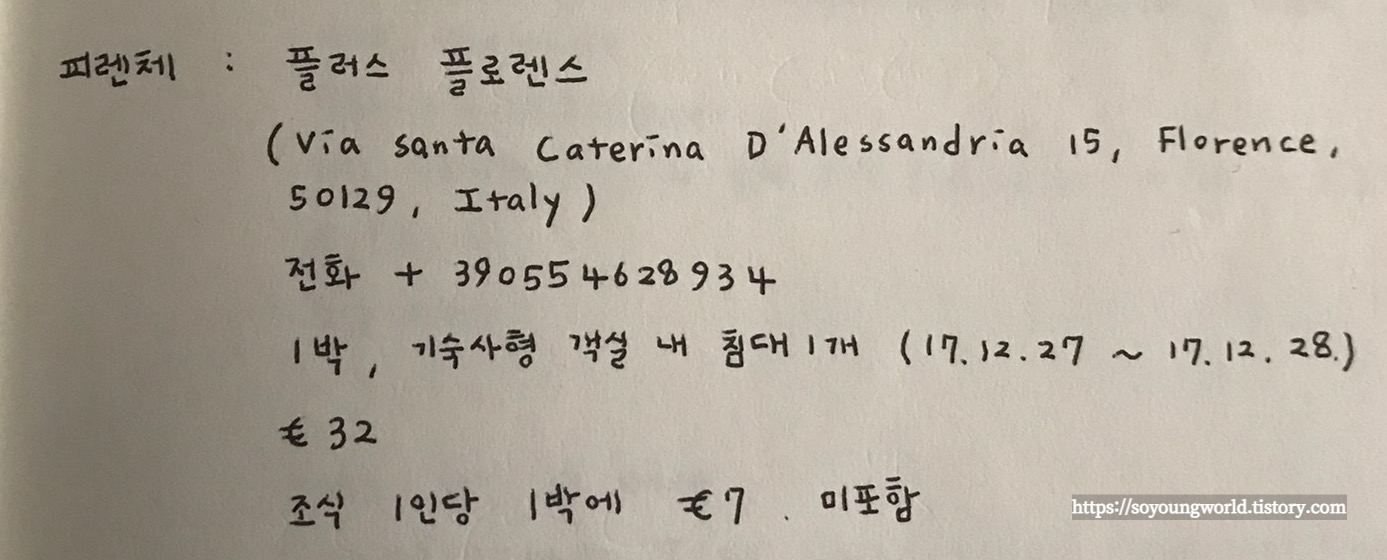 피렌체 : 플러스 플로렌스
(Via santa Caterina D'Alessandria 15, Florence,
50129, Italy)
전화 + 390554628934
1박, 기숙사형 객실 내 침대 1개 (17.12.27 ~ 17.12.28.)
€ 32
조식 1인당 1박에 €7. 미포함
https://soyoungworld.tistory.com